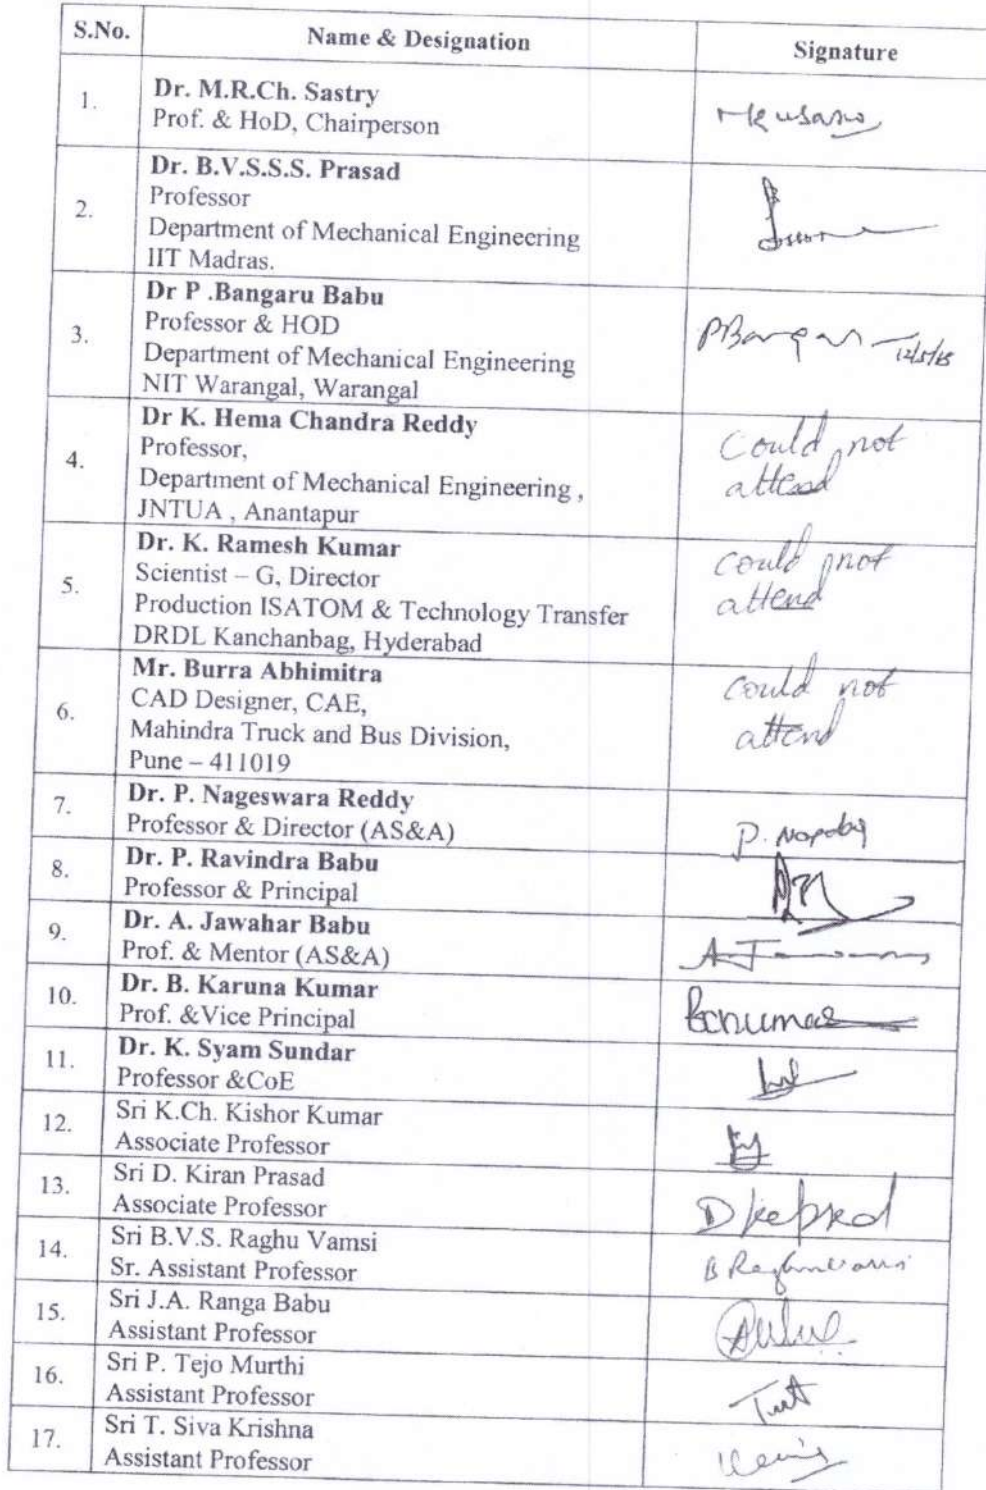 S.No. Name & Designation Signature
1. Dr. M.R.Ch. Sastry
Prof. & HoD, Chairperson
2. Dr. B.V.S.S.S. Prasad
Professor
Department of Mechanical Engineering
IIT Madras.
3. Dr P .Bangaru Babu
Professor & HOD
Department of Mechanical Engineering
NIT Warangal, Warangal
4. Dr K. Hema Chandra Reddy
Professor,
Department of Mechanical Engineering ,
JNTUA , Anantapur
Could not
attend
5. Dr. K. Ramesh Kumar
Scientist – G, Director
Production ISATOM & Technology Transfer
DRDL Kanchanbag, Hyderabad
could not
attend
6. Mr. Burra Abhimitra
CAD Designer, CAE,
Mahindra Truck and Bus Division,
Pune – 411019
could not
attend
7. Dr. P. Nageswara Reddy
Professor & Director (AS&A)
8. Dr. P. Ravindra Babu
Professor & Principal
9. Dr. A. Jawahar Babu
Prof. & Mentor (AS&A)
10. Dr. B. Karuna Kumar
Prof. &Vice Principal
11. Dr. K. Syam Sundar
Professor &CoE
12. Sri K.Ch. Kishor Kumar
Associate Professor
13. Sri D. Kiran Prasad
Associate Professor
14. Sri B.V.S. Raghu Vamsi
Sr. Assistant Professor
15. Sri J.A. Ranga Babu
Assistant Professor
16. Sri P. Tejo Murthi
Assistant Professor
17. Sri T. Siva Krishna
Assistant Professor